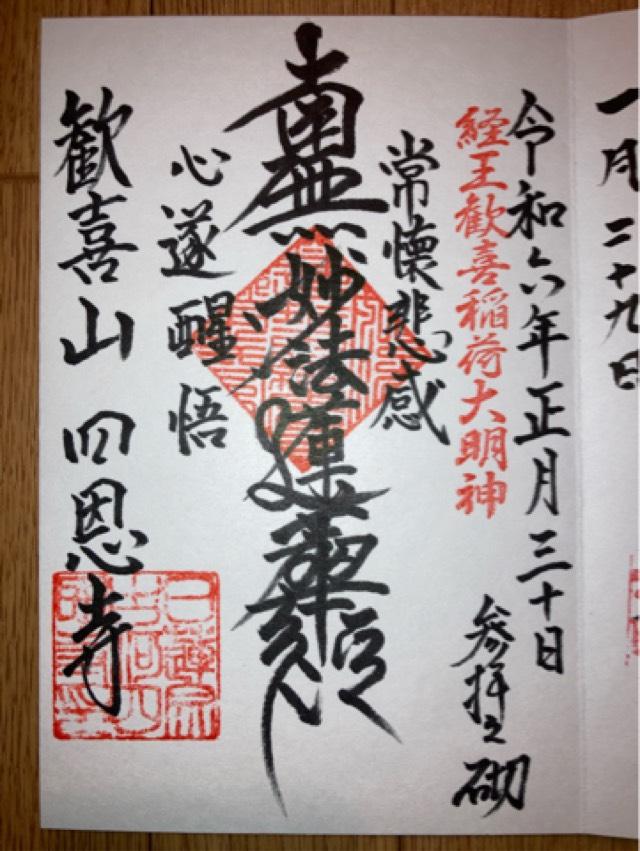 一月二十九日
令和六年正月三十日
参拝之砌
経王歓喜稲荷大明神
常懐悲感
南無妙法蓮華経
心遂醒悟
歓喜山 四恩寺